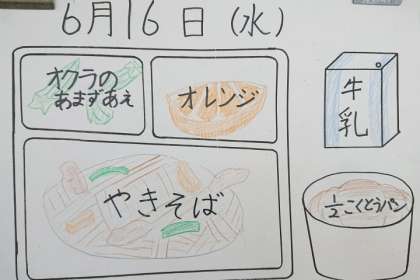 6月16日(水)
オクラの
あまずあえ
オレンジ
牛
乳
やきそば
½こくとうパン